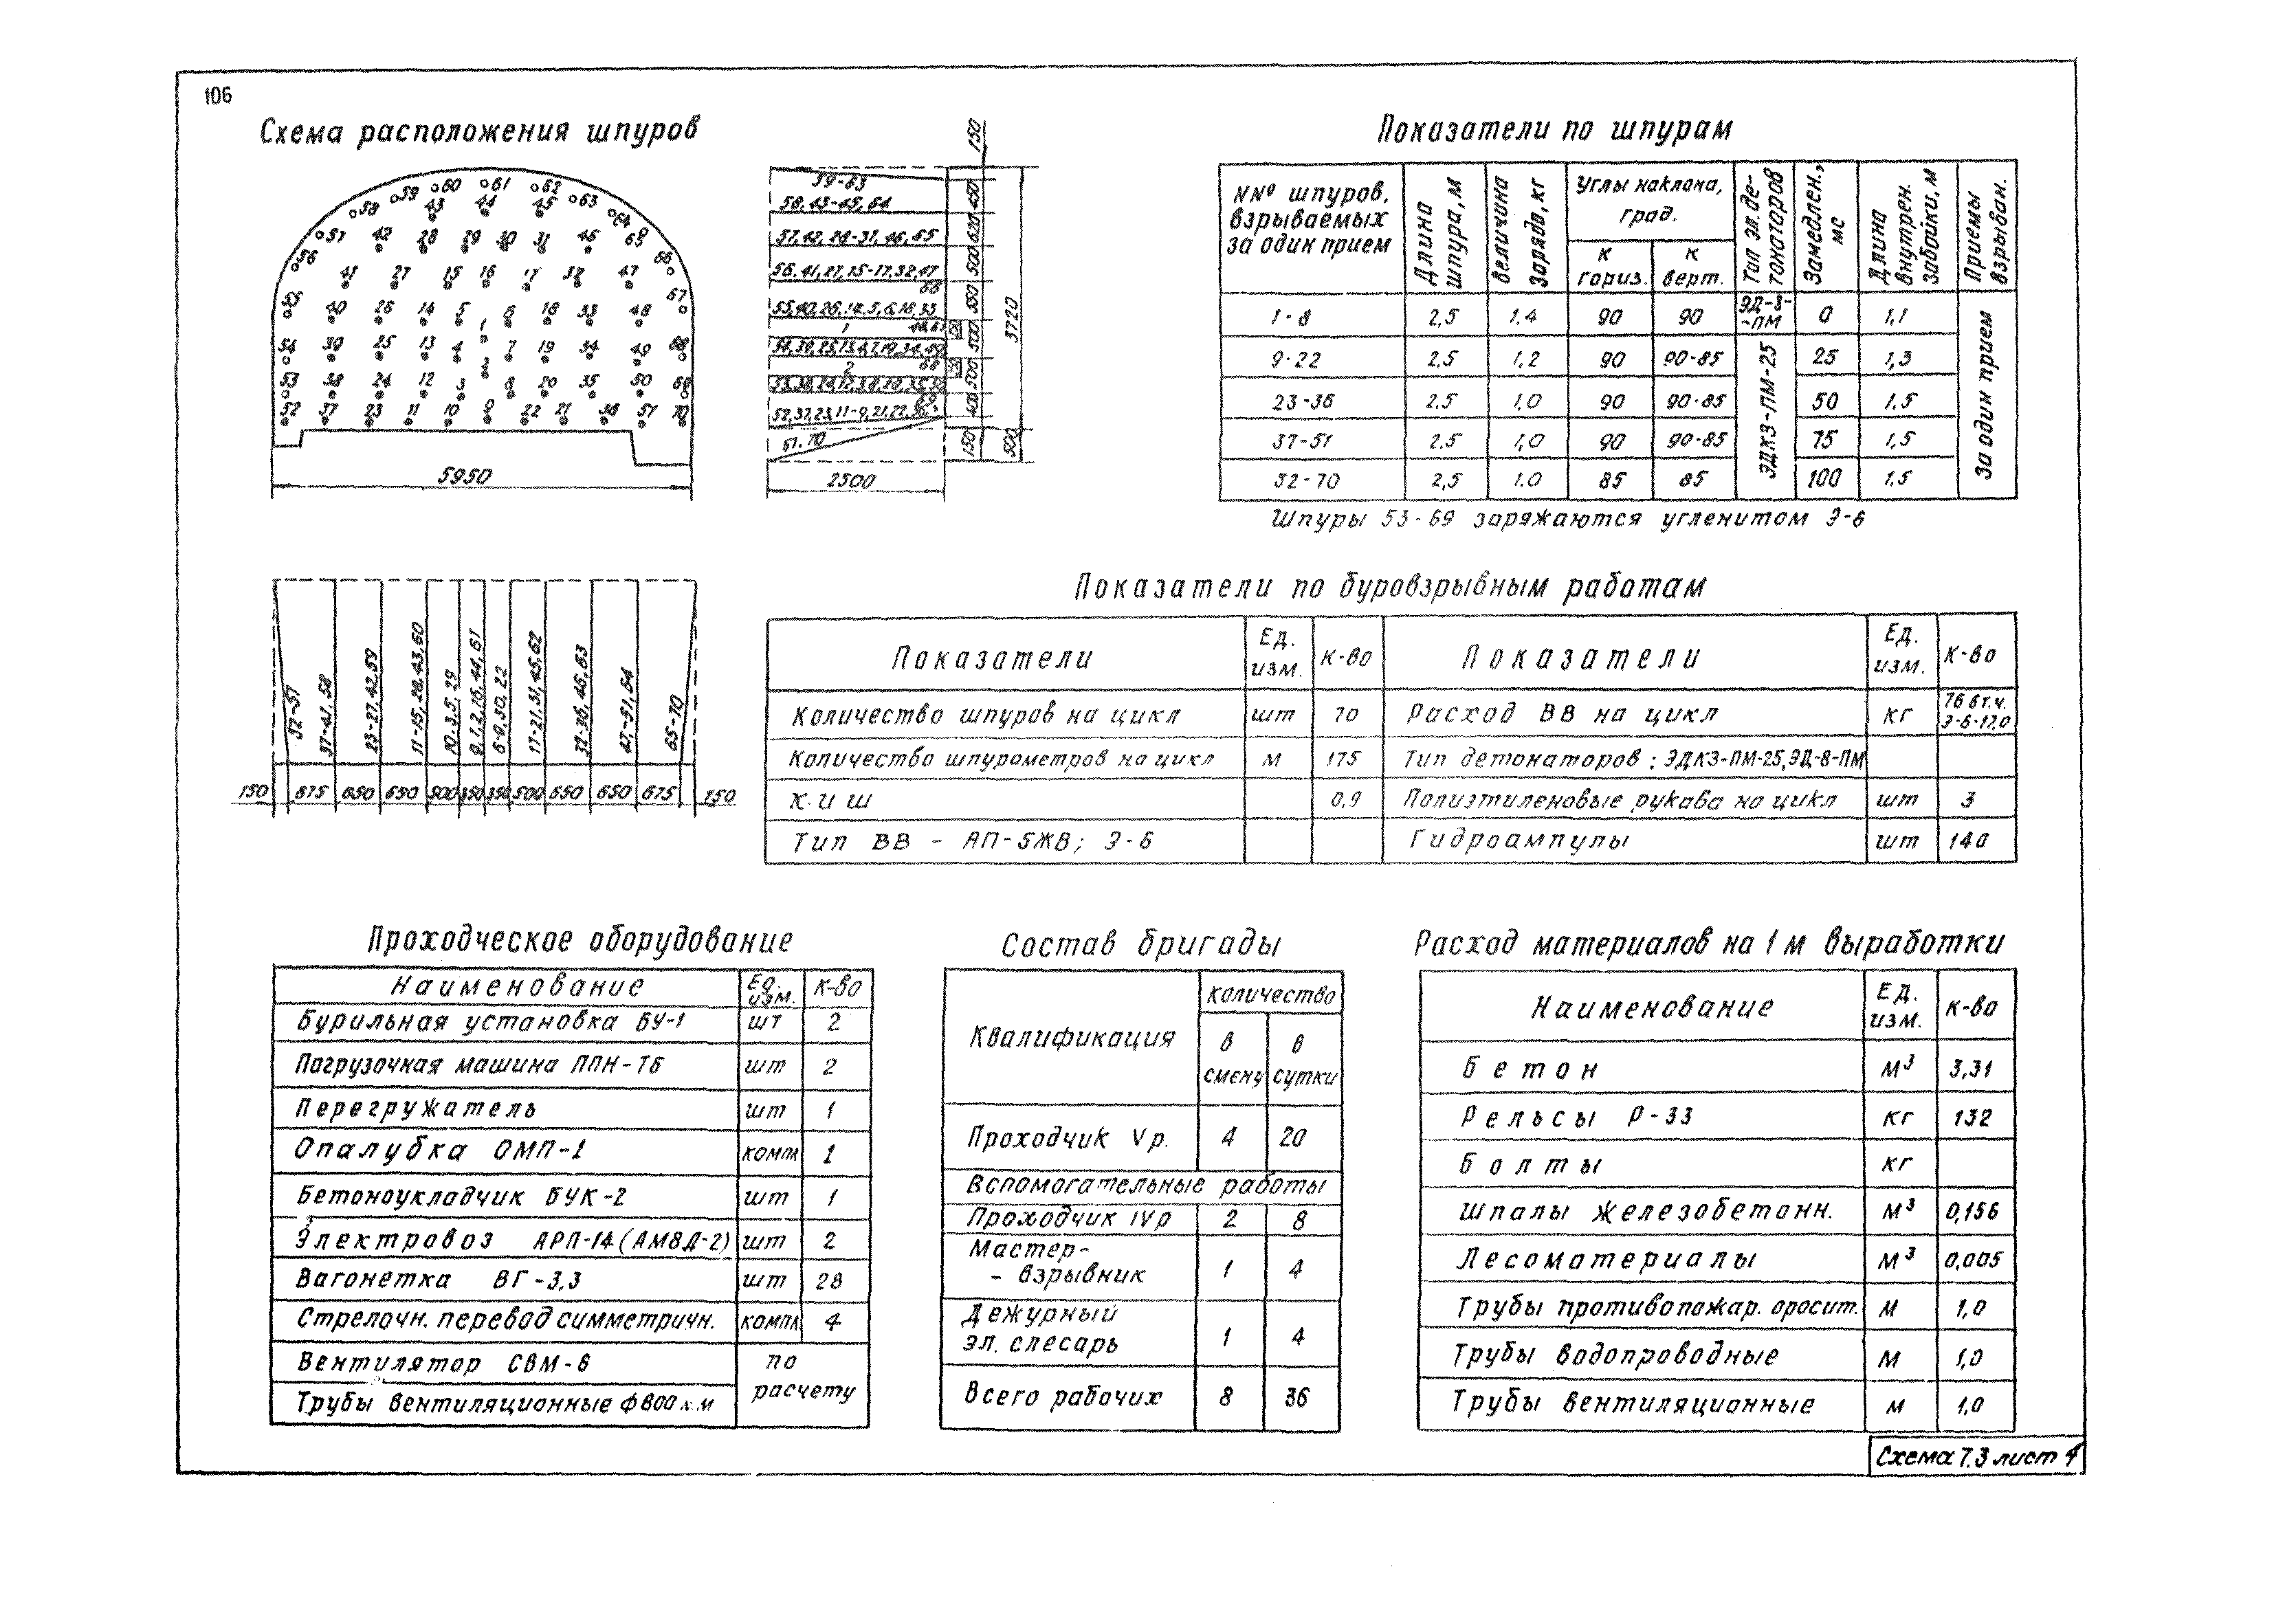 106
Схема расположения шпуров
59-63
58,43-45,64
57,42,28-31,46,65
56,41,27,15-17,32,47
66
55,40,26,14,5,6,18,33
1
2
52,37,23,11-9,21,22,36
51,70
150
450
620
500
500
500
400
150
3720
500
5950
2500
52-57
37-41,58
23-27,42,59
11-15,28,43,60
10-3,5,29
9,1,2,16,44,61
6-8,30,22
17-21,31,45,62
32-36,46,63
47-51,64
65-70
150 675 650 650 500 350 350 500 650 650 675 150
Показатели по шпурам
NNº шпуров, взрываемых за один прием
Длина шпура, м
Величина заряда, кг
Углы наклона, град.
к гориз.
к верт.
Тип эл. детонаторов
Замедлен., мс
Длина внутрен. забойки, м
Приемы взрыван.
1-8 2,5 1,4 90 90 ЭД-8-ПМ 0 1,1
9-22 2,5 1,2 90 90-85 25 1,3
23-36 2,5 1,0 90 90-85 50 1,5
37-51 2,5 1,0 90 90-85 75 1,5
52-70 2,5 1,0 85 85 100 1,5
ЭДКЗ-ПМ-25
За один прием
Шпуры 53-69 заряжаются угленитом Э-6
Показатели по буровзрывным работам
Показатели Ед. изм. К-во Показатели Ед. изм. К-во
Количество шпуров на цикл шт 70 Расход ВВ на цикл кг 76 в т.ч. Э-6-17,0
Количество шпурометров на цикл м 175 Тип детонаторов: ЭДКЗ-ПМ-25, ЭД-8-ПМ
К.и ш 0,9 Полиэтиленовые рукава на цикл шт 3
Тип ВВ - АП-5ЖВ; Э-6 Гидроампулы шт 140
Проходческое оборудование
Наименование Ед. изм. К-во
Бурильная установка БУ-1 шт 2
Погрузочная машина ППН-7б шт 2
Перегружатель шт 1
Опалубка ОМП-1 компл 1
Бетоноукладчик БУК-2 шт 1
Электровоз АРП-14 (АМ8Д-2) шт 2
Вагонетка ВГ-3,3 шт 28
Стрелочн. перевод симметричн. компл 4
Вентилятор СВМ-6 по
Трубы вентиляционные ф 800 мм расчету
Состав бригады
Квалификация
Количество
в смену
в сутки
Проходчик V р. 4 20
Вспомогательные работы
Проходчик IV р 2 8
Мастер-
- взрывник 1 4
Дежурный
эл. слесарь 1 4
Всего рабочих 8 36
Расход материалов на 1 м выработки
Наименование Ед. изм. К-во
Бетон м³ 3,31
Рельсы Р-33 кг 132
Болты кг
Шпалы железобетонн. м³ 0,156
Лесоматериалы м³ 0,005
Трубы противопожар. оросит. м 1,0
Трубы водопроводные м 1,0
Трубы вентиляционные м 1,0
Схема 7.3 лист 4